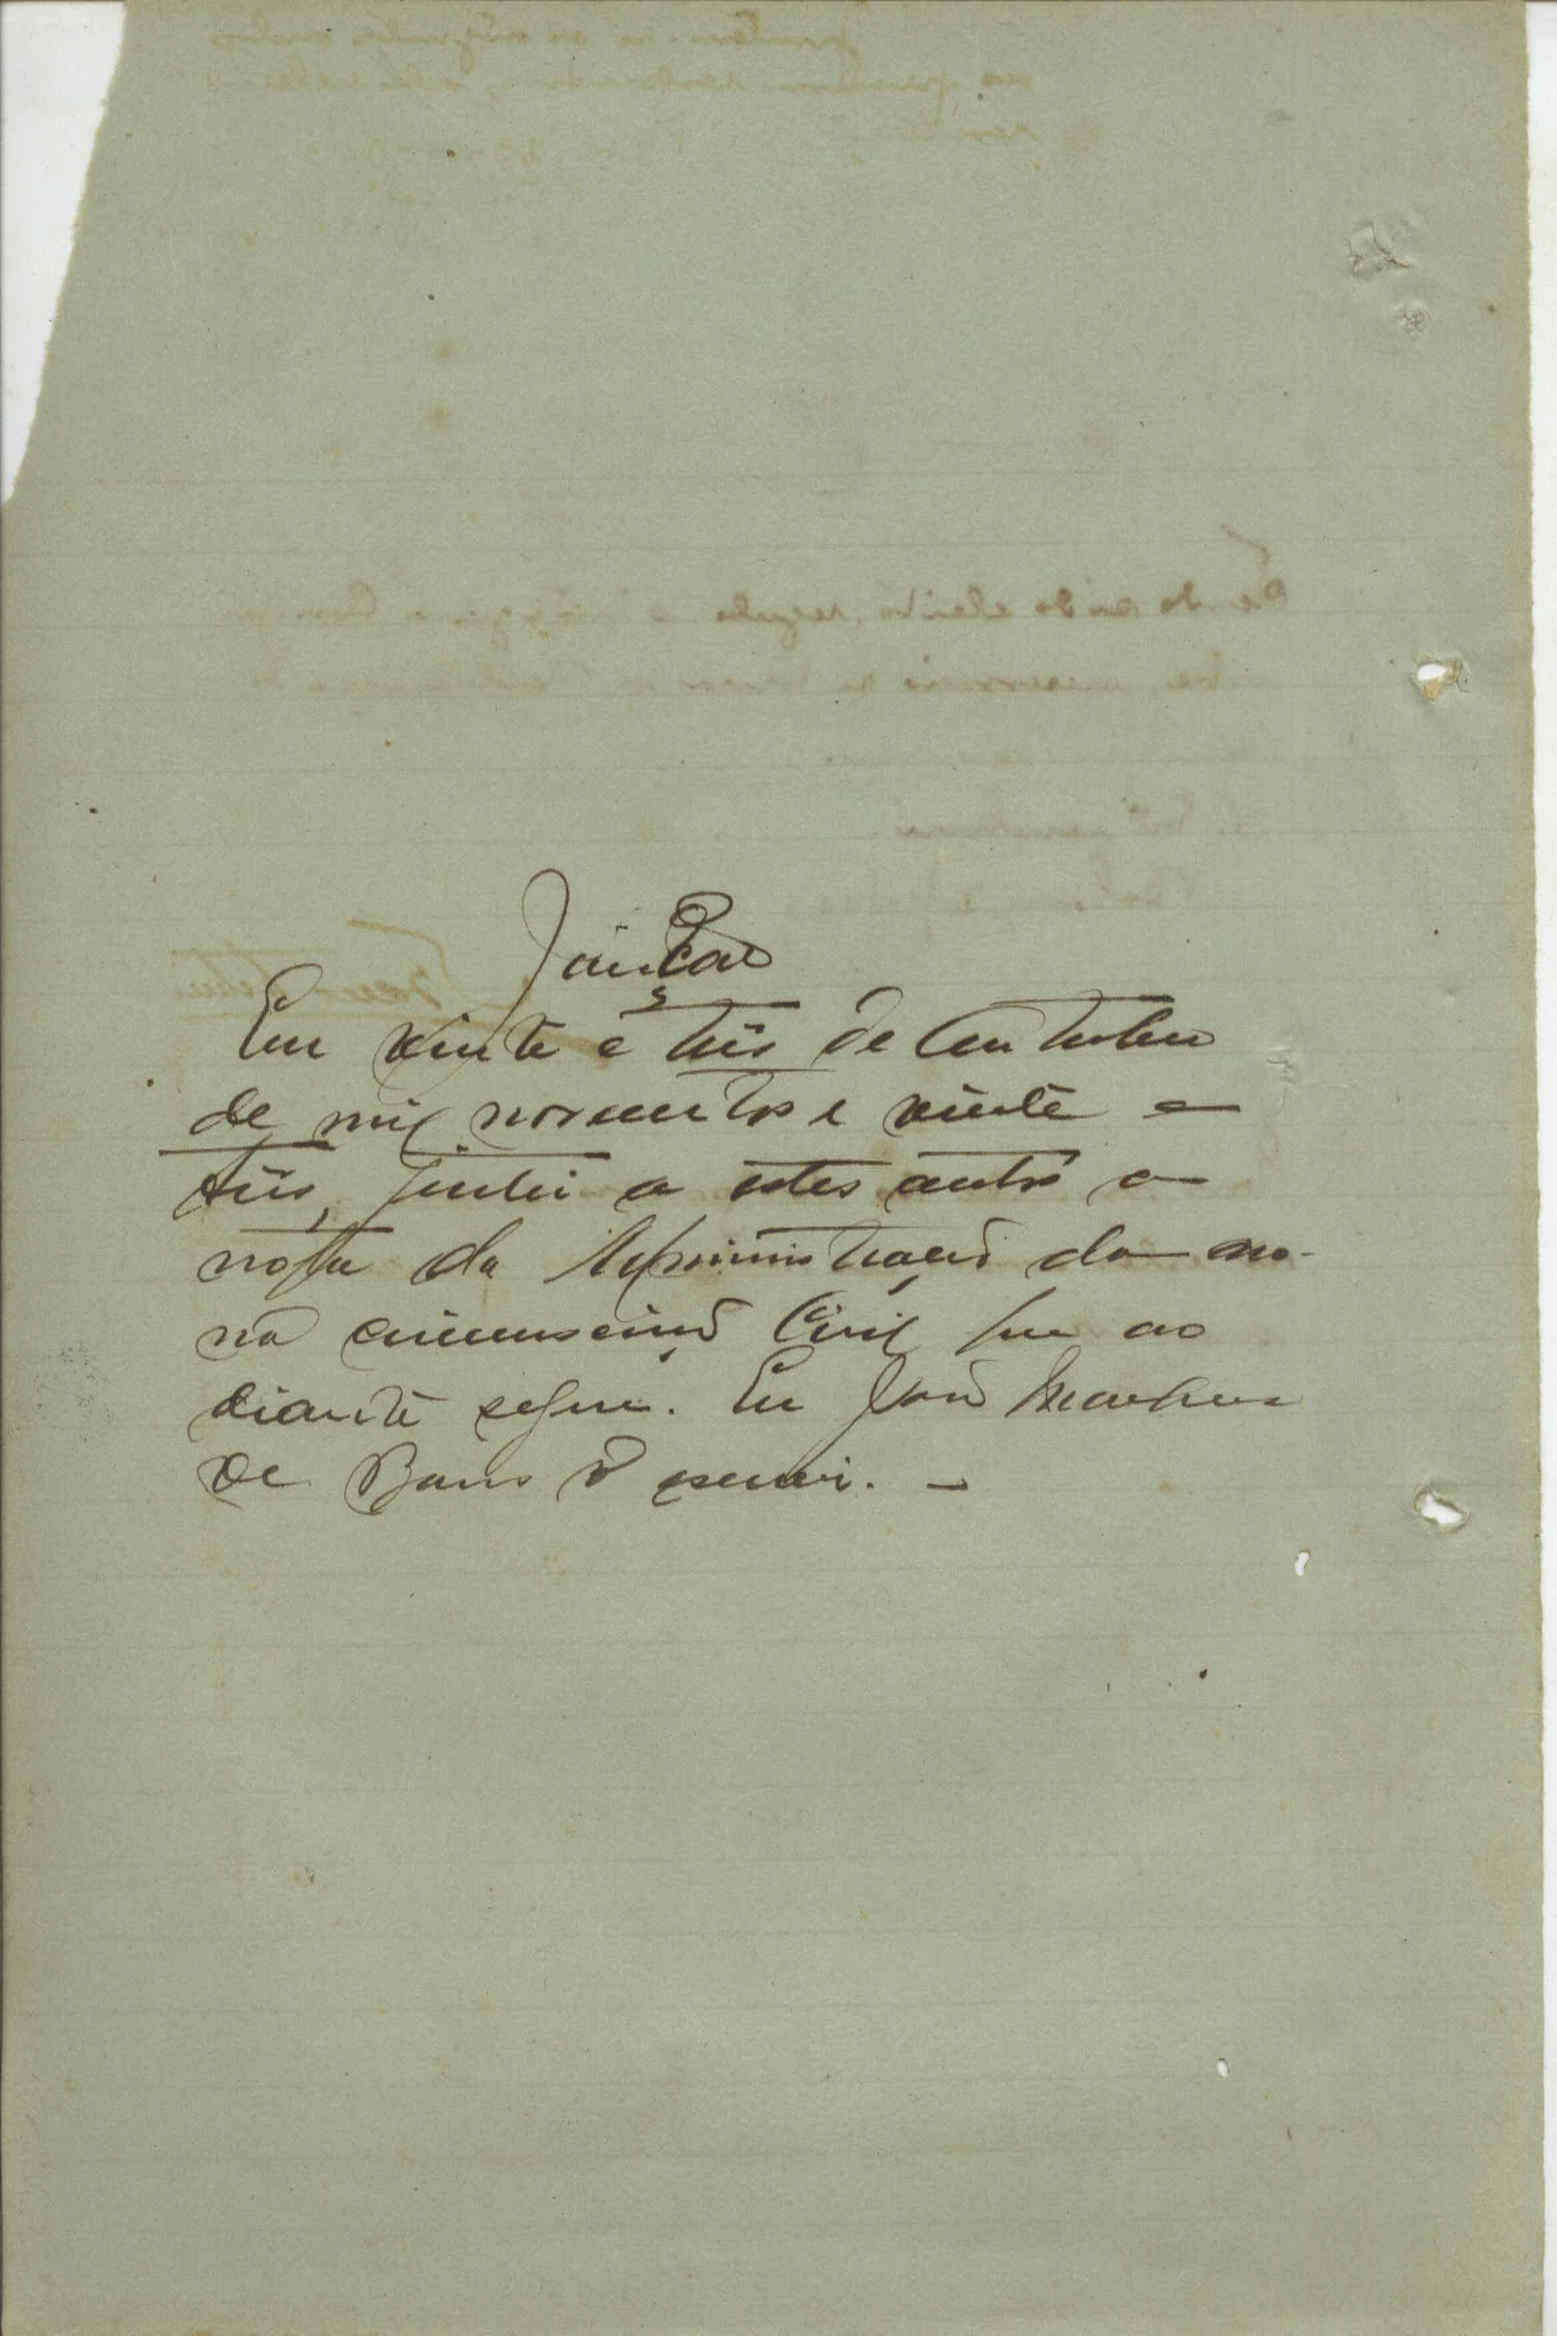 Junção
Em vinte e três de Outubro
de mil novecentos e vinte e
três, juntei a estes autos a
nota da Administração da no-
na circunscrição Civil que ao
diante segue. Eu João Marques
de Barros o escrevi. —